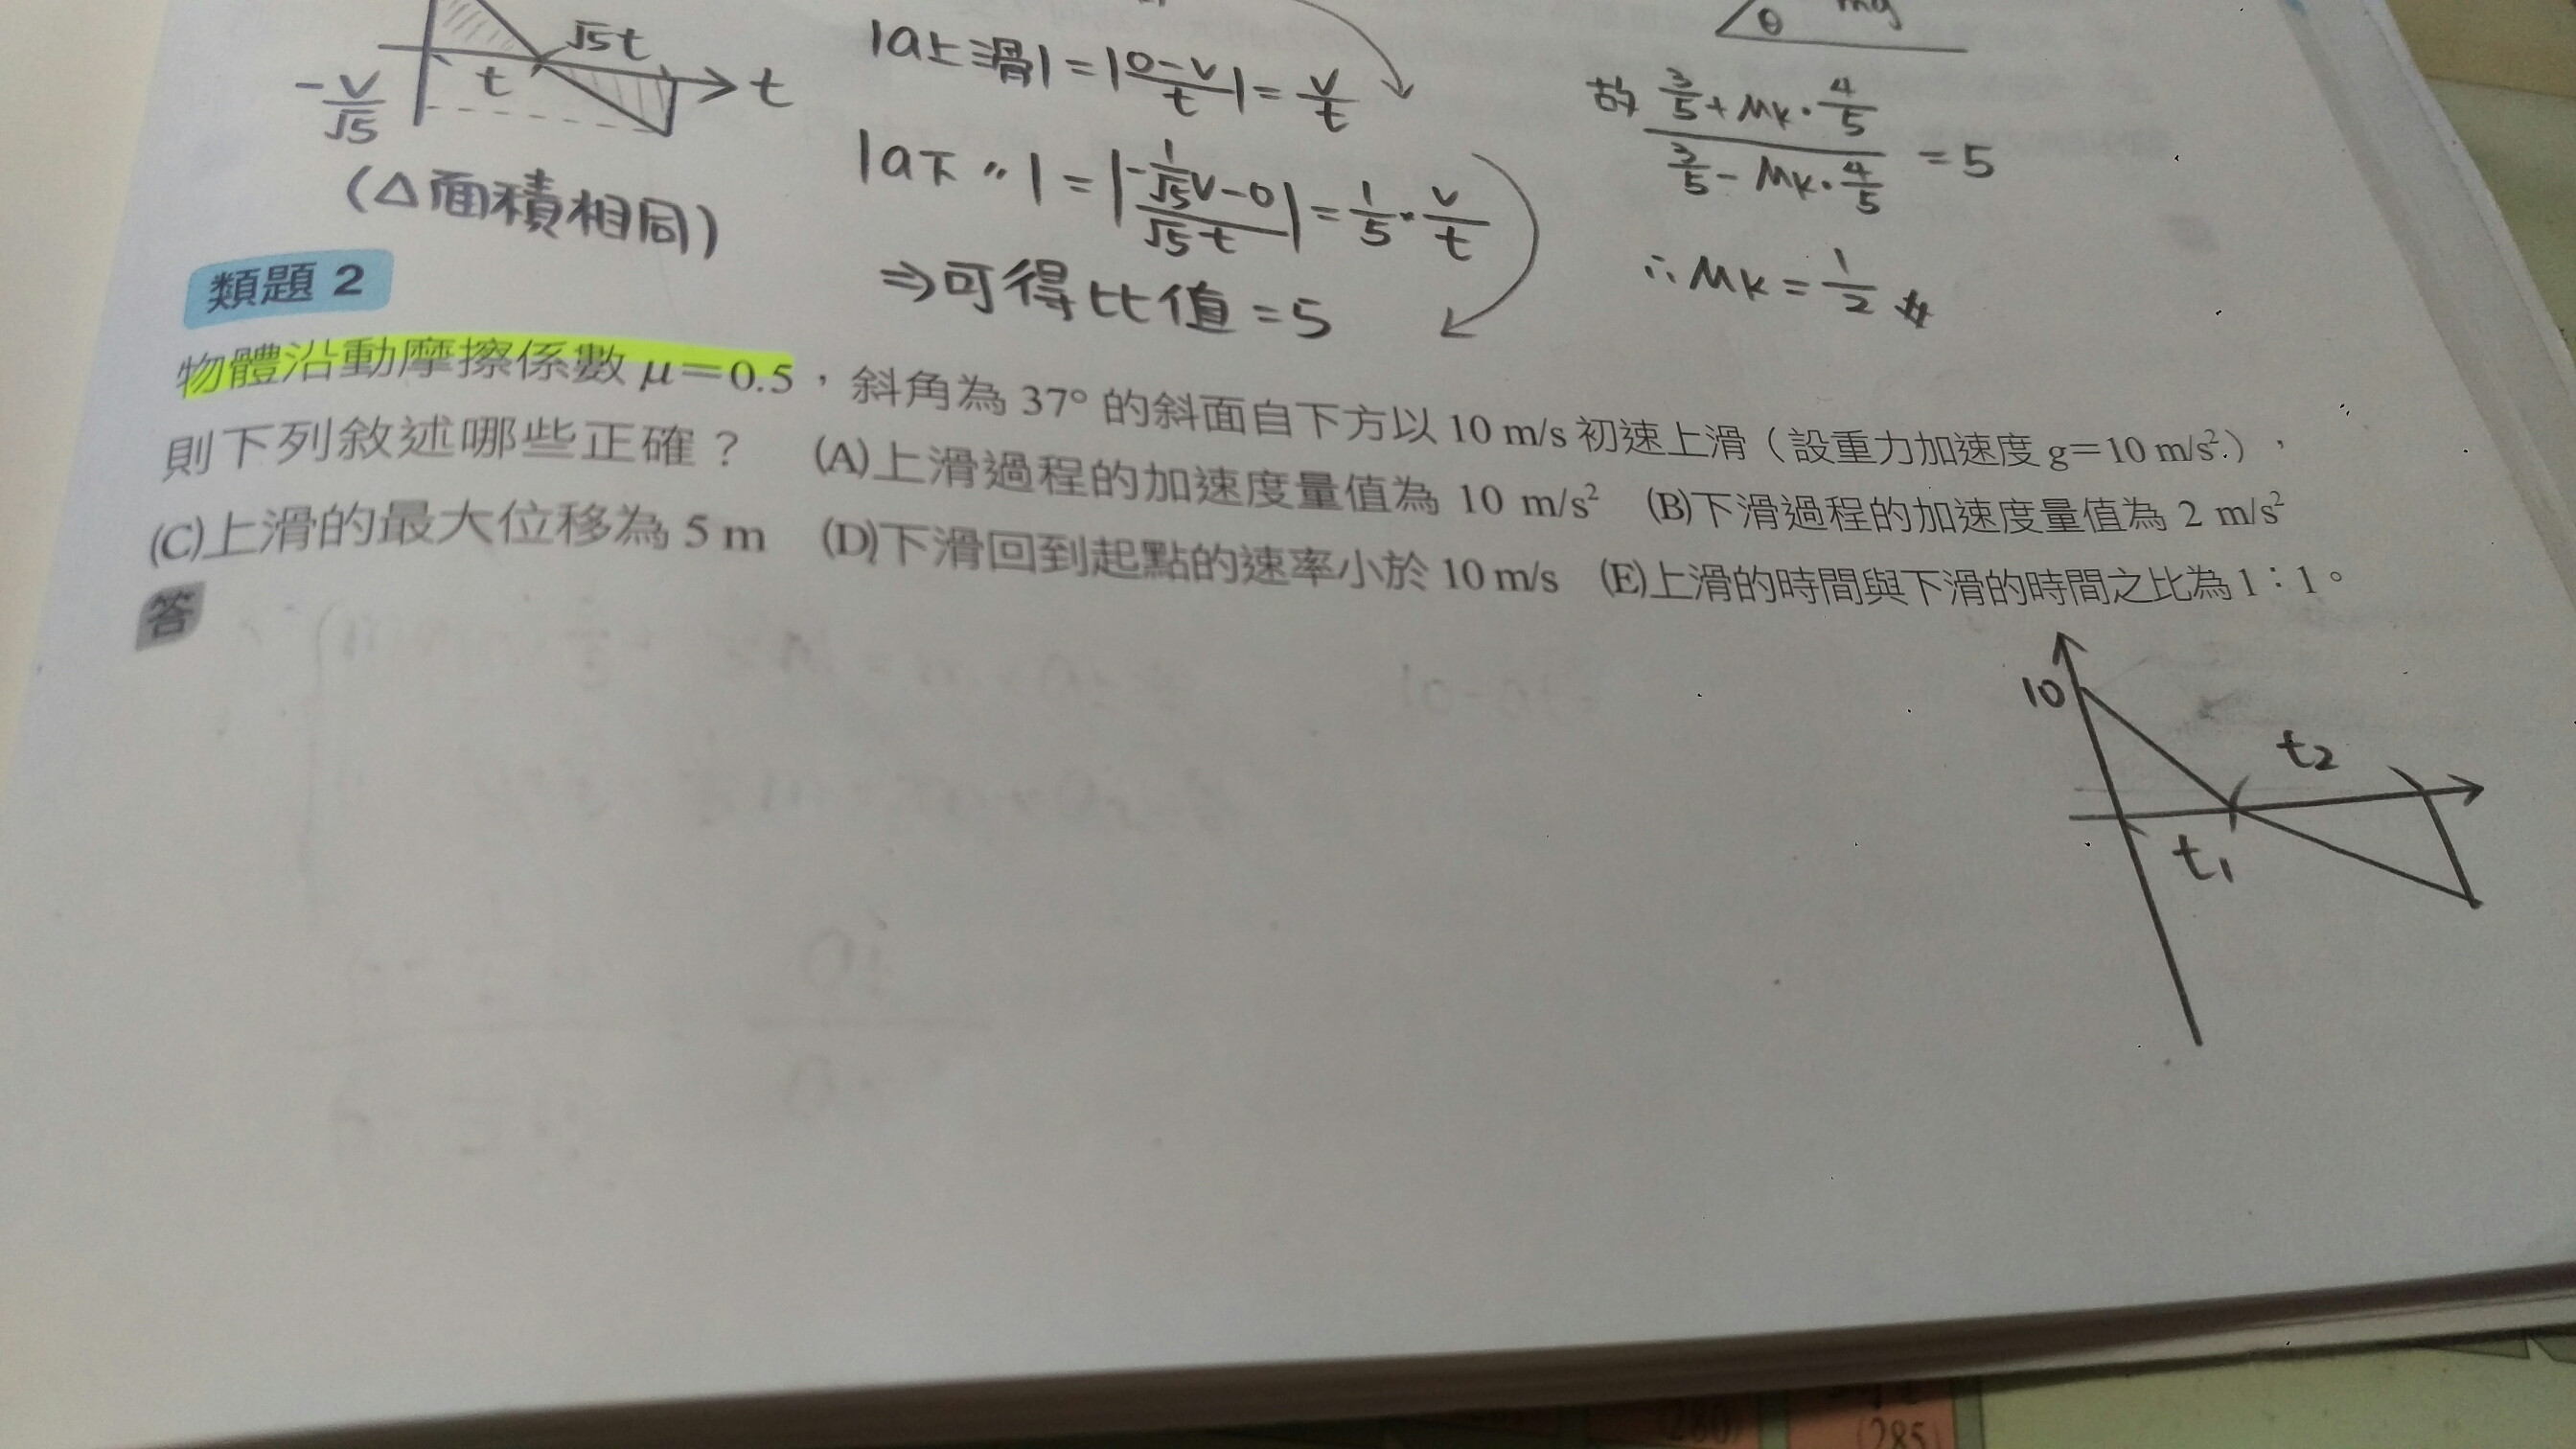 √5t
t
t
-v/√5
(△面積相同)
|a上滑| = |(0-v)/t| = v/t
|a下〃| = |(-1/√5 v-0)/(√5t)| = 1/5 · v/t
⇒可得比值=5
θ mg
故 (3/5+μk·4/5)/(3/5-μk·4/5) = 5
∴μk = 1/2
類題 2
物體沿動摩擦係數 μ=0.5,斜角為 37° 的斜面自下方以 10 m/s 初速上滑(設重力加速度 g=10 m/s²),
則下列敘述哪些正確? (A)上滑過程的加速度量值為 10 m/s² (B)下滑過程的加速度量值為 2 m/s²
(C)上滑的最大位移為 5 m (D)下滑回到起點的速率小於 10 m/s (E)上滑的時間與下滑的時間之比為 1:1。
答
10
t2
t1
(285)